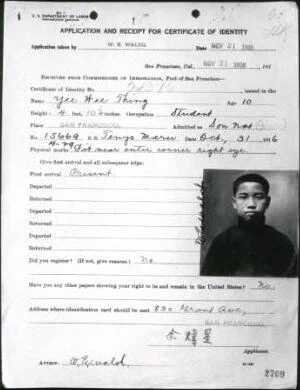 U. S. DEPARTMENT OF LABOR
APPLICATION AND RECEIPT FOR CERTIFICATE OF IDENTITY
Application taken by W. E. WALSH, Date NOV 21 1916
San Francisco, Cal., NOV 21 1916, 191
RECEIVED FROM COMMISSIONER OF IMMIGRATION, Port of San Francisco—
Certificate of Identity No. issued in the
Name Yee Hee Thing Age 10
Height 4 feet, 10½ inches Occupation Student
Place SAN FRANCISCO Admitted as Son Nat
No. 15669 ex Tenyo Maru Date Oct, 31 1916
Physical marks Pit near outer corner right eye.
Give first arrival and all subsequent trips:
First arrival Present.
Departed Returned
Departed Returned
Departed
Returned
Departed
Returned
Did you register? (If not, give reason.) No.
Have you any other papers showing your right to be and remain in the United States? No.
Address where identification card should be sent 830 Grant Ave,
SAN FRANCISCO
Applicant.
Attest:
2769